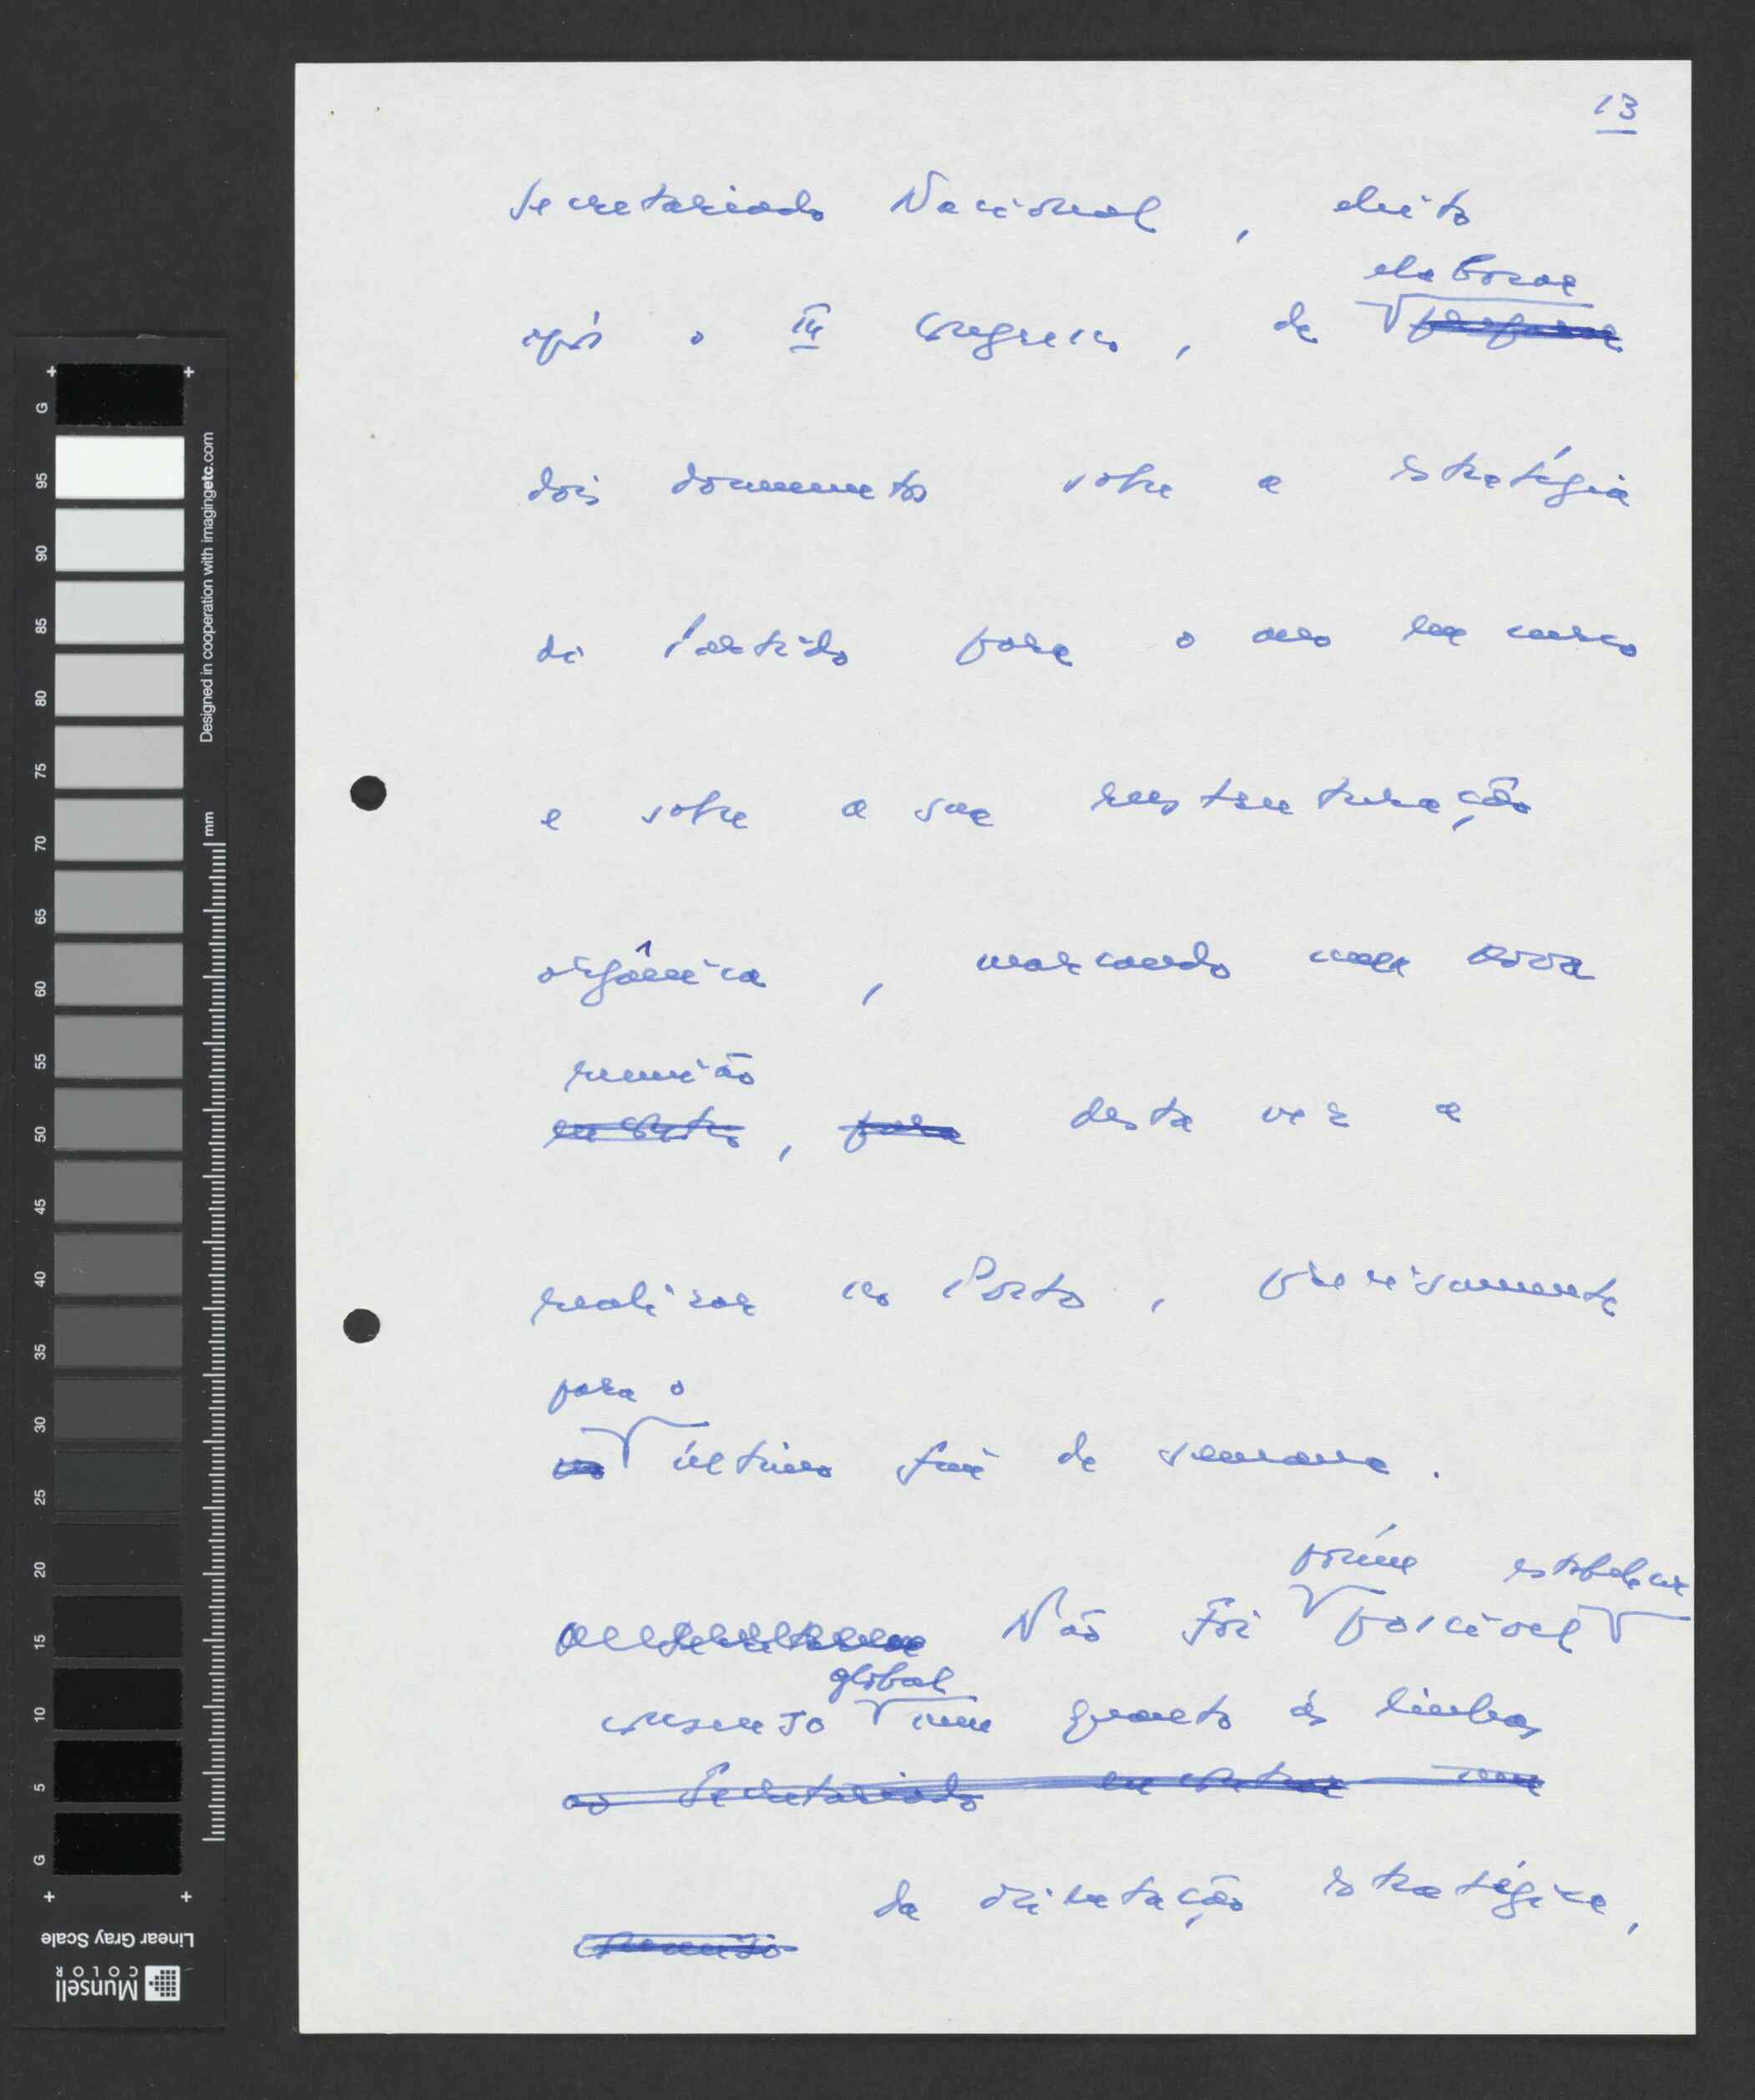 13
Secretariado Nacional, eleito
elaborar
após o III Congresso, de
dois documentos sobre a estratégia
do Partido para o ano em curso
e sobre a sua reestruturação
orgânica, marcando uma nova
reunião
encontro, para desta vez a
realizar no Porto, precisamente
para o
no último fim de semana.
porém estabelecer
Não foi possível
global
consenso quanto às linhas
ao Secretariado encontrar um
da orientação estratégica,
consenso
G 95 90 85 80 75 70 65 60 55 50 45 40 35 30 25 20 15 10 5 G
Designed in cooperation with imagingetc.com
mm
Linear Gray Scale
Munsell
COLOR